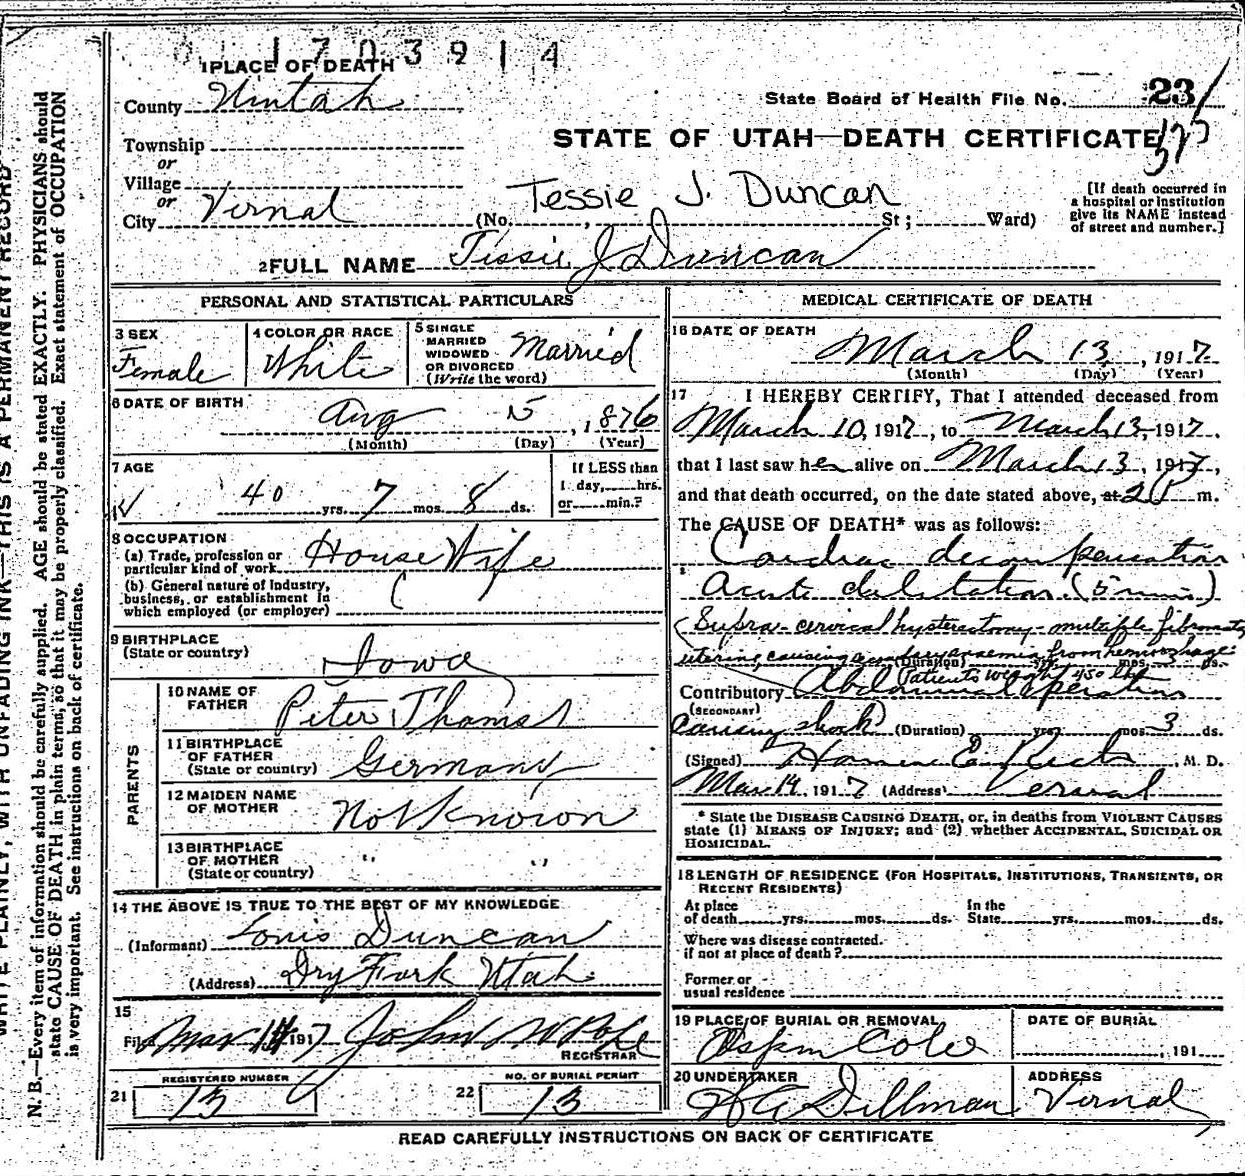 1703914
1 PLACE OF DEATH
County Uintah
State Board of Health File No. 23
Township
STATE OF UTAH—DEATH CERTIFICATE
or
Village
or
City Vernal
(No. Tessie J. Duncan St; Ward)
[If death occurred in
a hospital or institution
give its NAME instead
of street and number.]
2 FULL NAME Tissie J Duncan
PERSONAL AND STATISTICAL PARTICULARS
3 SEX
Female
4 COLOR OR RACE
White
5 SINGLE
MARRIED
WIDOWED
OR DIVORCED
(Write the word)
Married
6 DATE OF BIRTH
Aug 5, 1876
(Month) (Day) (Year)
7 AGE
40 yrs. 7 mos. 8 ds.
If LESS than
1 day, hrs.
or min.?
8 OCCUPATION
(a) Trade, profession or
particular kind of work House Wife
(b) General nature of Industry,
business, or establishment in
which employed (or employer)
9 BIRTHPLACE
(State or country)
Iowa
PARENTS
10 NAME OF
FATHER
Peter Thoms
11 BIRTHPLACE
OF FATHER
(State or country) Germany
12 MAIDEN NAME
OF MOTHER
Not Known
13 BIRTHPLACE
OF MOTHER
(State or country)
" "
14 THE ABOVE IS TRUE TO THE BEST OF MY KNOWLEDGE
(Informant) Louis Duncan
(Address) Dry Fork Utah
15
Filed Mar 14 1917 John N Pope
REGISTRAR
REGISTERED NUMBER
21 13
NO. OF BURIAL PERMIT
22 13
MEDICAL CERTIFICATE OF DEATH
16 DATE OF DEATH
March 13, 1917
(Month) (Day) (Year)
17 I HEREBY CERTIFY, That I attended deceased from
March 10, 1917, to March 13, 1917.
that I last saw her alive on March 13, 1917,
and that death occurred, on the date stated above, at 2 P m.
The CAUSE OF DEATH* was as follows:
Cardiac decompensation
Acute dilitation (5 min)
(Supra-cervical hysterectomy - multiple fibromata
uterine, causing secondary anaemia from hemorrhage
(Duration) yrs. mos. 3 ds.
Patients weight 450 lbs
Contributory Abdominal operation
(SECONDARY)
causing shock) (Duration) yrs. mos. 3 ds.
(Signed) Homer E. M. D.
Mar 14, 1917 (Address) Vernal
* State the DISEASE CAUSING DEATH, or, in deaths from VIOLENT CAUSES
state (1) MEANS OF INJURY; and (2) whether ACCIDENTAL, SUICIDAL OR
HOMICIDAL.
18 LENGTH OF RESIDENCE (FOR HOSPITALS, INSTITUTIONS, TRANSIENTS, OR
RECENT RESIDENTS)
At place
of death yrs. mos. ds.
In the
State yrs. mos. ds.
Where was disease contracted.
if not at place of death?
Former or
usual residence
19 PLACE OF BURIAL OR REMOVAL
Aspen Colo
DATE OF BURIAL
, 191
20 UNDERTAKER
Dillman
ADDRESS
Vernal
READ CAREFULLY INSTRUCTIONS ON BACK OF CERTIFICATE
WRITE PLAINLY, WITH UNFADING INK—THIS IS A PERMANENT RECORD
N. B.—Every item of information should be carefully supplied. AGE should be stated EXACTLY. PHYSICIANS should
state CAUSE OF DEATH in plain terms, so that it may be properly classified. Exact statement of OCCUPATION
is very important. See instructions on back of certificate.